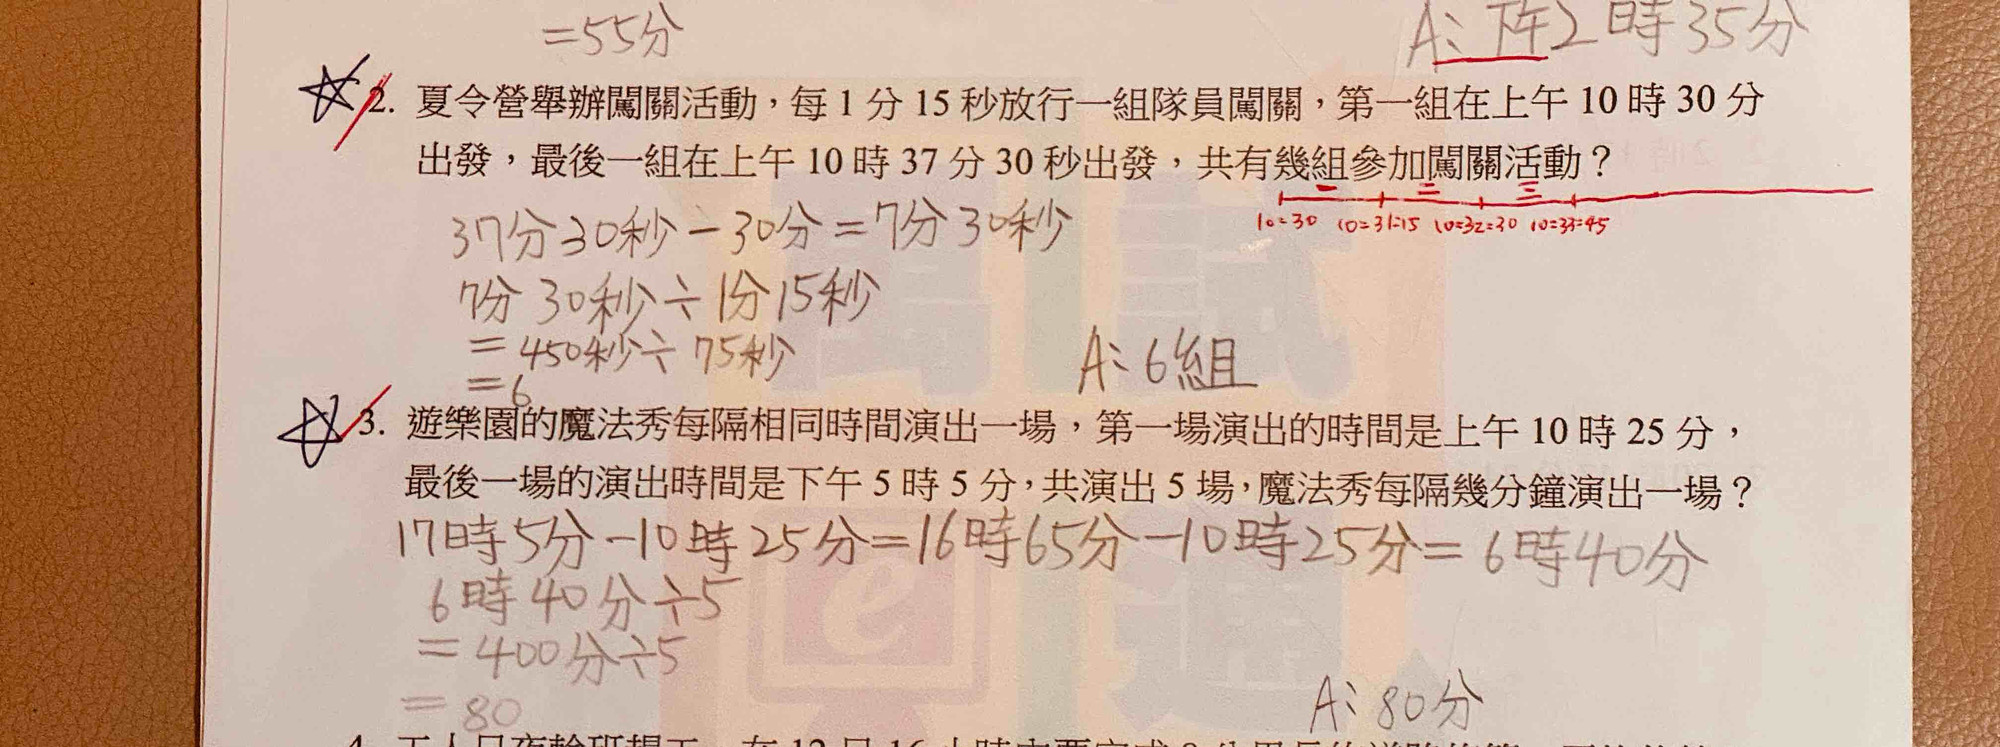 =55分
A:下午2時35分
2. 夏令營舉辦闖關活動，每 1 分 15 秒放行一組隊員闖關，第一組在上午 10 時 30 分
出發，最後一組在上午 10 時 37 分 30 秒出發，共有幾組參加闖關活動？
一 二 三
10:30 10:31:15 10:32:30 10:33:45
37分30秒-30分=7分30秒
7分30秒÷1分15秒
=450秒÷75秒
=6
A:6組
3. 遊樂園的魔法秀每隔相同時間演出一場，第一場演出的時間是上午 10 時 25 分，
最後一場的演出時間是下午 5 時 5 分，共演出 5 場，魔法秀每隔幾分鐘演出一場？
17時5分-10時25分=16時65分-10時25分=6時40分
6時40分÷5
=400分÷5
=80
A:80分